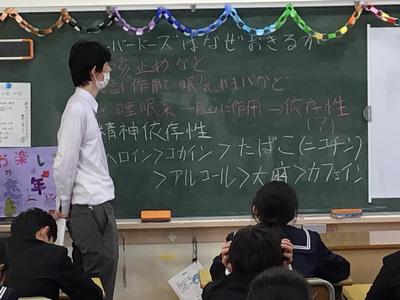 バードーズはなぜおきるか
咳止めなど
副作用 眠気 めまいなど
睡眠薬→脳に作用→依存性
(?)
精神依存性
ヘロイン>コカイン>たばこ(ニコチン)
>アルコール>大麻>カフェイン
お楽し
年